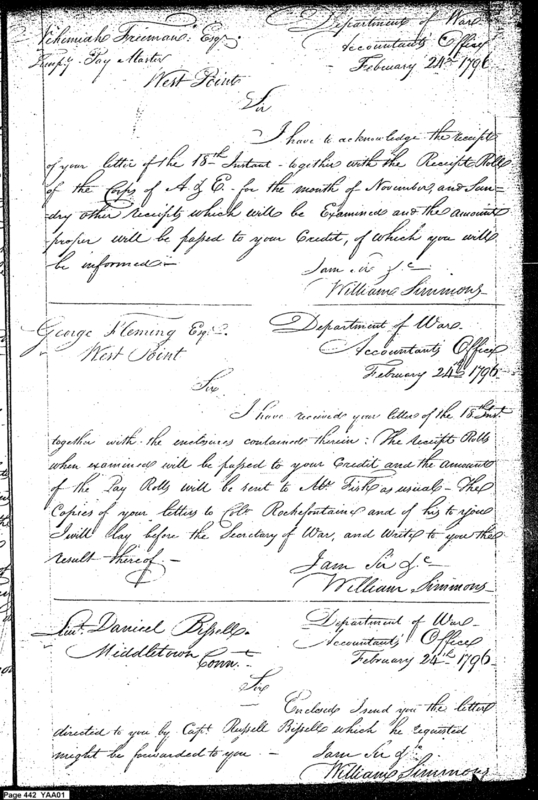 Nehemiah Freeman Esqr.
Tempy. Pay Master
West Point
Department of War
Accountants Office
February 24th 1796
Sir
I have to acknowledge the receipt
of your letter of the 18th Instant - together with the Receipt Rolls
of the Corps of A & E - for the month of November, and Sun-
dry other receipts which will be Examined and the amount
proper will be passed to your Credit, of which you will
be informed -
I am Sir &c
William Simmons
George Fleming Esqr.
West Point
Department of War
Accountants Office
February 24th 1796
Sir
I have received your letter of the 18th Inst.
together with the enclosures contained therein: The receipt Rolls
when examined will be passed to your Credit and the amount
of the Pay Rolls will be sent to Mr. Fish as usual - The
Copies of your letters to Colo. Rochefontaine and of his to you
I will lay before the Secretary of War, and write to you the
result thereof -
I am Sir &c
William Simmons
Lieut. Daniel Bissell
Middletown
Connt.
Department of War
Accountants Office
February 24th 1796
Sir
Enclosed I send you the letter
directed to you by Capt. Russell Bissell which he requested
might be forwarded to you -
I am Sir &c
William Simmons
Page 442 YAA01